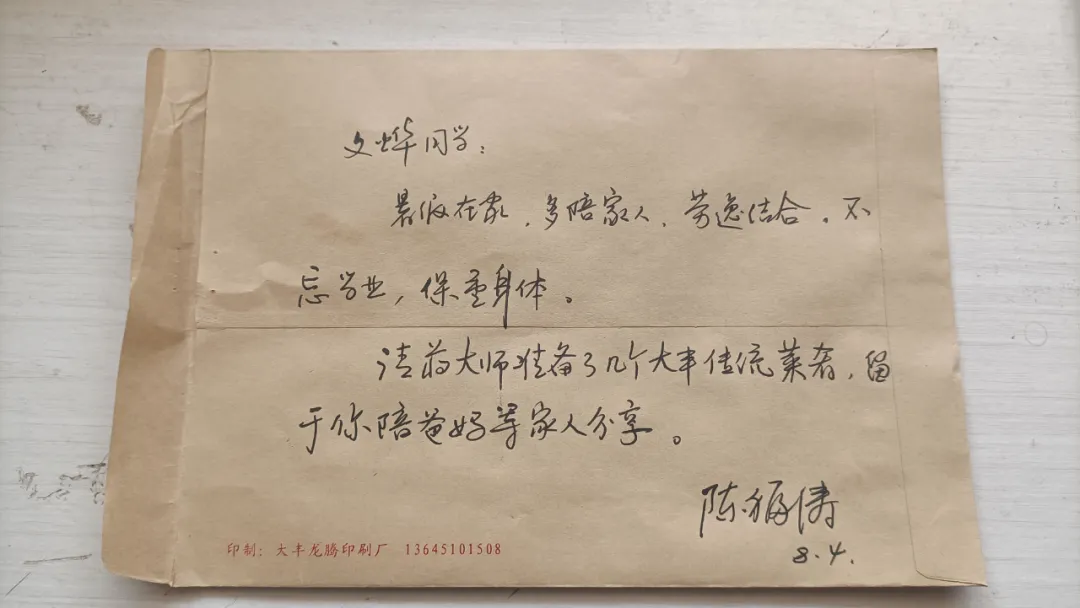 文烨同学：
暑假在家，多陪家人，劳逸结合。不
忘学业，保重身体。
请蒋大师准备了几个大丰传统菜肴，留
于你陪爸妈等家人分享。
陈福涛
8.4.
印制：大丰龙腾印刷厂 13645101508